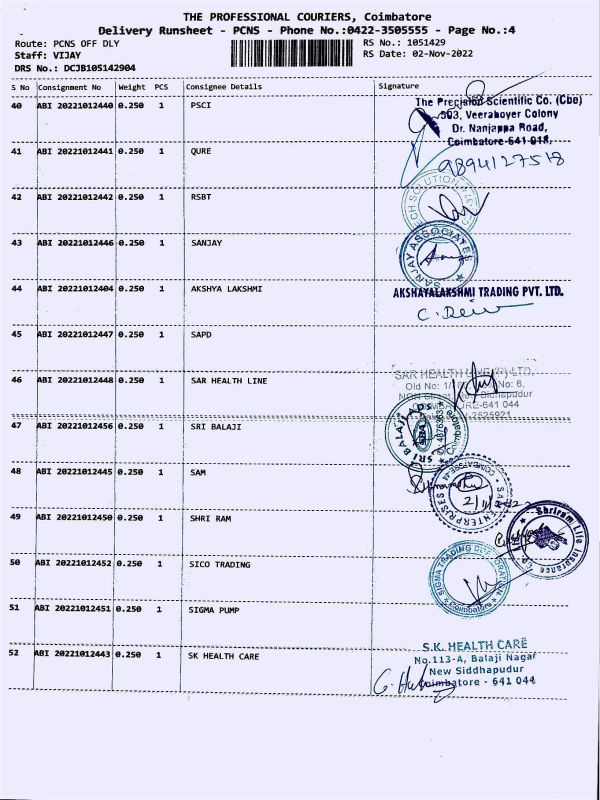 THE PROFESSIONAL COURIERS, Coimbatore
Delivery Runsheet - PCNS - Phone No.:0422-3505555 - Page No.:4
Route: PCNS OFF DLY
RS No.: 1051429
Staff: VIJAY
RS Date: 02-Nov-2022
DRS No.: DCJB105142904
S No Consignment No Weight PCS Consignee Details Signature
40 ABI 20221012440 0.250 1 PSCI
The Precision Scientific Co. (Cbe)
503, Veerahoyer Colony
Dr. Nanjappa Road,
Coimbatore-641 018.
9894127518
41 ABI 20221012441 0.250 1 QURE
42 ABI 20221012442 0.250 1 RSBT
TECH SOLUTION
43 ABI 20221012446 0.250 1 SANJAY
SANJAY ASSOCIATES
44 ABI 20221012404 0.250 1 AKSHYA LAKSHMI
AKSHAYALAKSHMI TRADING PVT. LTD.
45 ABI 20221012447 0.250 1 SAPD
46 ABI 20221012448 0.250 1 SAR HEALTH LINE
SAR HEALTH
Old No: No: 6,
641 044
47 ABI 20221012456 0.250 1 SRI BALAJI
SRI BALAJI
48 ABI 20221012445 0.250 1 SAM
ENTERPRISES
49 ABI 20221012450 0.250 1 SHRI RAM
Shriram Life Insurance
50 ABI 20221012452 0.250 1 SICO TRADING
SIGMA TRADING CORPORATION
Coimbatore
51 ABI 20221012451 0.250 1 SIGMA PUMP
52 ABI 20221012443 0.250 1 SK HEALTH CARE
S.K. HEALTH CARE
No.113-A, Balaji Nagar
New Siddhapudur
Coimbatore - 641 044